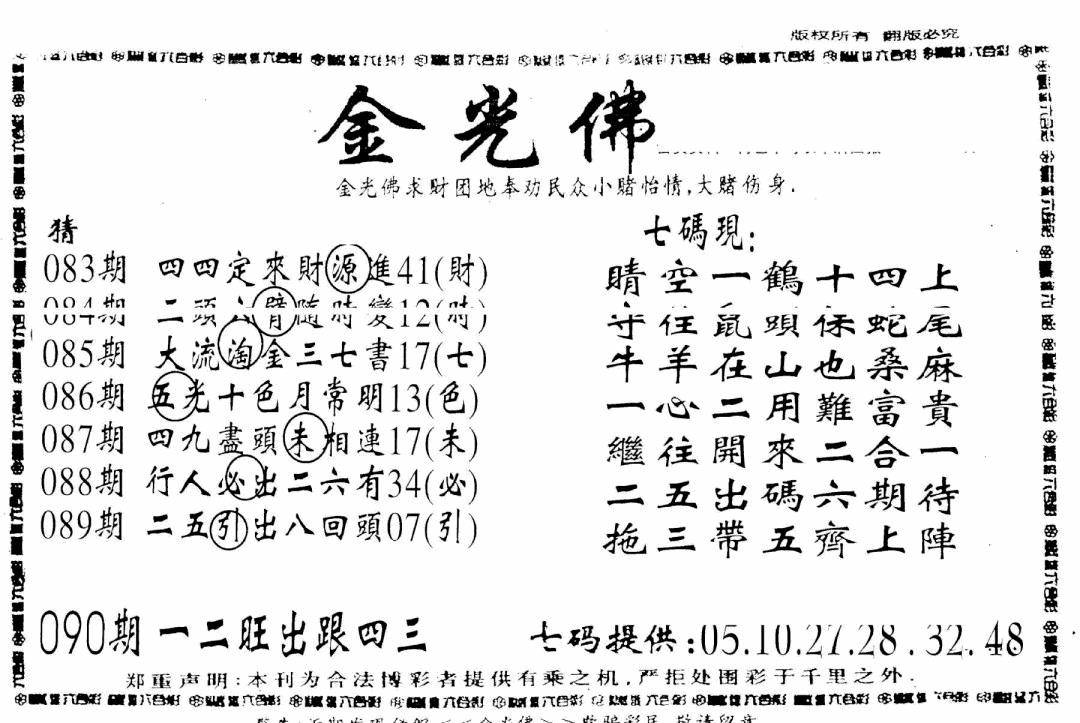 版权所有 翻版必究
金光佛
金光佛求财团地奉劝民众小赌怡情,大赌伤身.
猜
083期 四四定來財源進41(財)
084期 二頭六臂随時變12(時)
085期 大流淘金三七書17(七)
086期 五光十色月常明13(色)
087期 四九盡頭未相連17(未)
088期 行人必出二六有34(必)
089期 二五引出八回頭07(引)
090期 一二旺出跟四三
七碼現:
晴空一鶴十四上
守住鼠頭保蛇尾
牛羊在山也桑麻
一心二用難富貴
繼往開來二合一
二五出碼六期待
拖三帶五齊上陣
七码提供:05.10.27.28.32.48
郑重声明:本刊为合法博彩者提供有乘之机,严拒处图彩于千里之外.